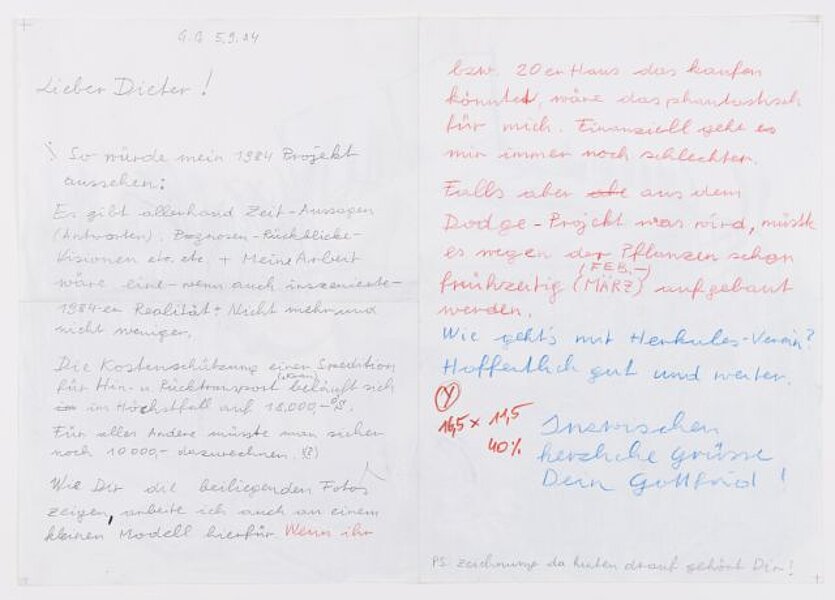 G.B 5.9.84
Lieber Dieter!
So würde mein 1984 Projekt
aussehen:
Es gibt allerhand Zeit-Aussagen
(Antworten). Prognosen-Rückblicke-
Visionen etc. etc + Meine Arbeit
wäre eine-wenn auch inszenierte-
1984-er Realität! Nicht mehr und
nicht weniger.
Die Kostenschätzung einer Spedition
für Hin- u. Rücktransport beläuft sich
im Höchstfall auf 18.000,- öS.
Für alles Andere müsste man sicher
noch 10000,- dazurechnen. (?)
Wie Dir die beiliegenden Fotos
zeigen, arbeite ich auch an einem
kleinen Modell hierfür. Wenn ihr
bzw. 20er Haus das kaufen
könntet, wäre das phantastisch
für mich. Finanziell geht es
mir immer noch schlechter.
Falls aber aus dem
Dodge-Projekt was wird, müsste
es wegen der Pflanzen schon
(FEB.-)
frühzeitig (MÄRZ) aufgebaut
werden.
Wie geht's mit Herkules-Verein?
Hoffentlich gut und weiter.
Y
16,5 x 11,5
40%
Inzwischen
herzliche Grüsse
Dein Gottfried!
PS. Zeichnung da hinten drauf gehört Dir!